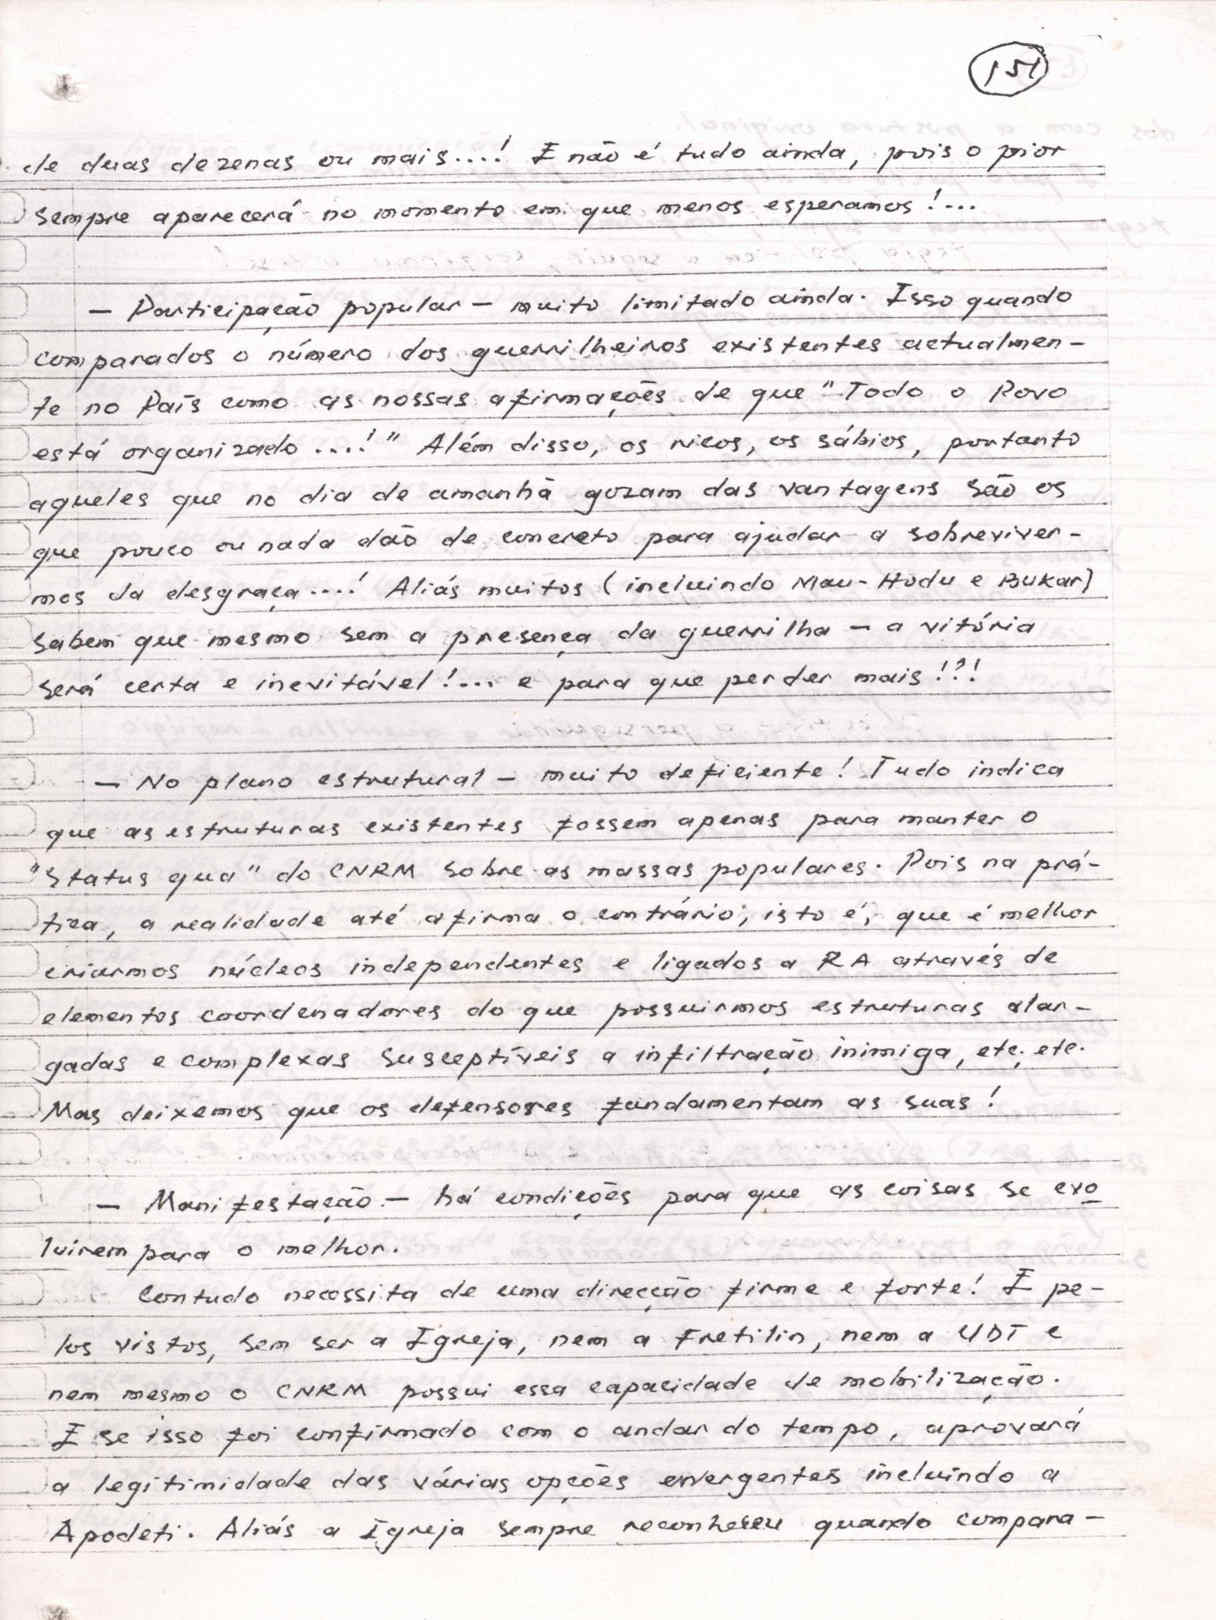 151
de duas dezenas ou mais....! E não é tudo ainda, pois o pior
sempre aparecerá no momento em que menos esperamos!...
— Participação popular — muito limitado ainda. Isso quando
comparados o número dos guerrilheiros existentes actualmen-
te no País como as nossas afirmações de que "Todo o Povo
está organizado....!" Além disso, os ricos, os sábios, portanto
aqueles que no dia de amanhã gozam das vantagens são os
que pouco ou nada dão de concreto para ajudar a sobreviver-
mos da desgraça....! Aliás muitos (incluindo Mau-Hudu e Bukar)
sabem que mesmo sem a presença da guerrilha — a vitória
será certa e inevitável!... e para que perder mais!?!
— No plano estrutural — muito deficiente! Tudo indica
que as estruturas existentes fossem apenas para manter o
"Status qua" do CNRM sobre as massas populares. Pois na prá-
tica, a realidade até afirma o contrário; isto é, que é melhor
criarmos núcleos independentes e ligados a RA através de
elementos coordenadores do que possuirmos estruturas alar-
gadas e complexas susceptíveis a infiltração inimiga, etc. etc.
Mas deixemos que os defensores fundamentam as suas!
— Manifestação — há condições para que as coisas se evo
luirem para o melhor.
Contudo necessita de uma direcção firme e forte! E pe-
los vistos, sem ser a Igreja, nem a Fretilin, nem a UDT e
nem mesmo o CNRM possui essa capacidade de mobilização.
E se isso foi confirmado com o andar do tempo, aprovará
a legitimidade das várias opções emergentes incluindo a
Apodeti. Aliás a Igreja sempre reconheceu quando compara-